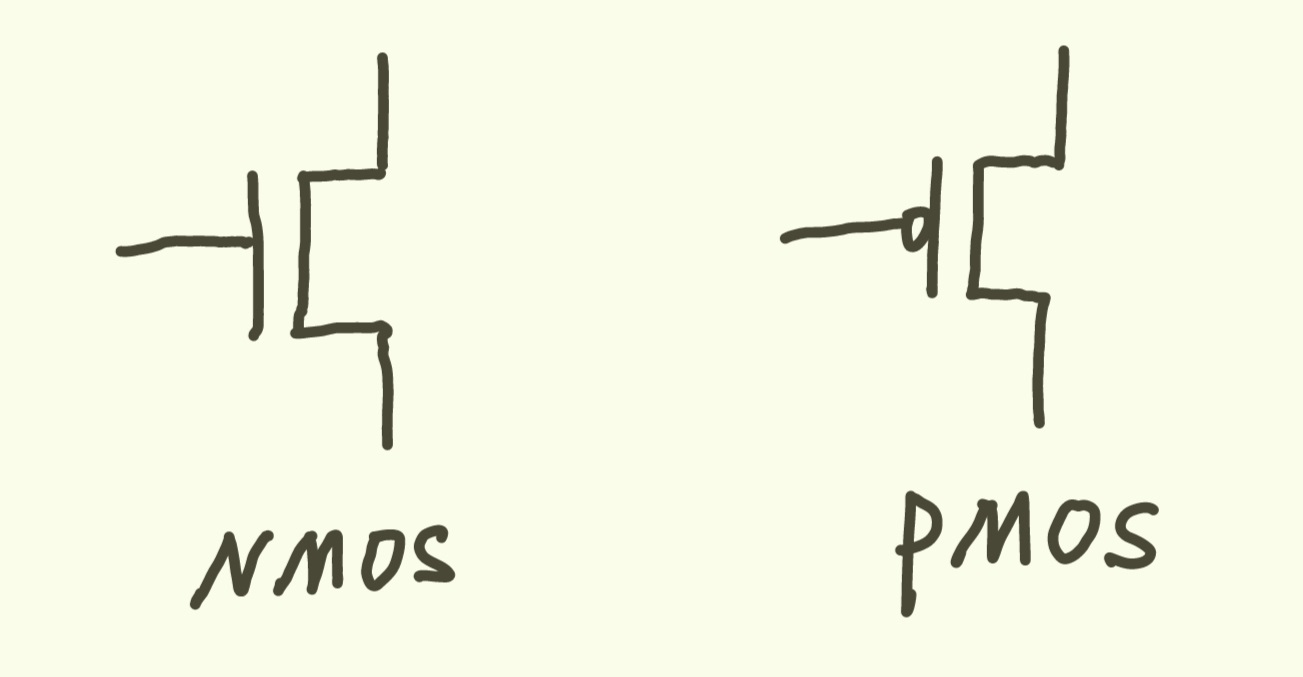 NMOS
PMOS